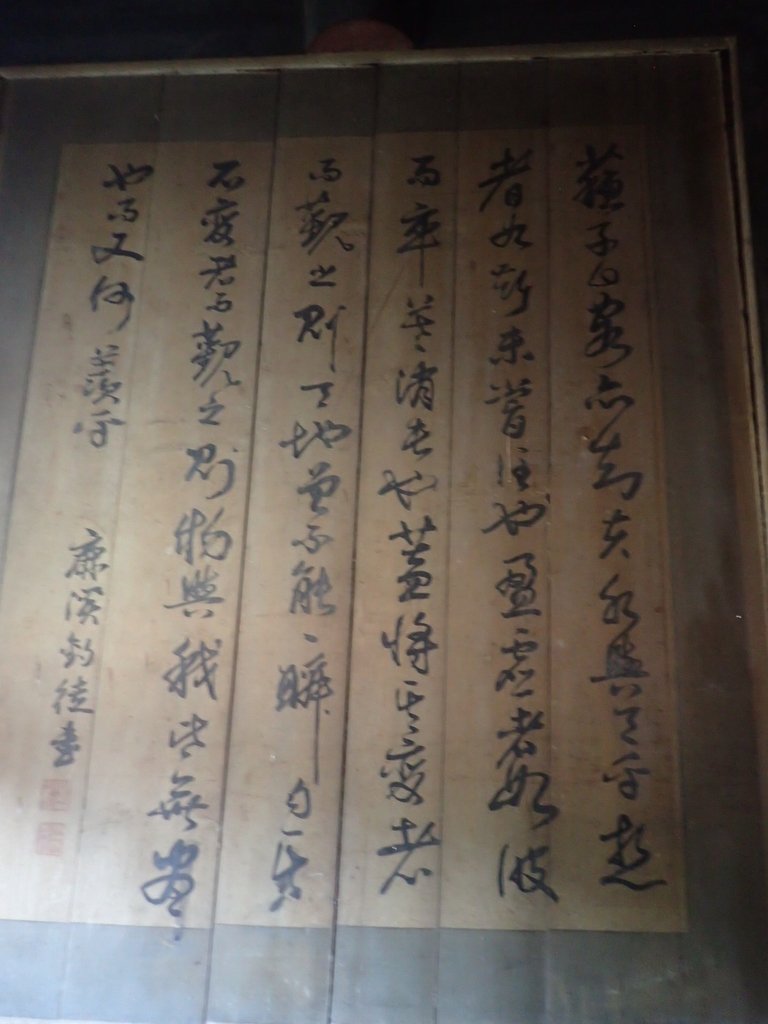 蘇子曰客亦知夫水與月乎逝
者如斯未嘗往也盈虛者如彼
而卒莫消長也蓋將其變者
而觀之則天地曾不能一瞬自其
不變者而觀之則物與我皆無盡
也而又何羨乎
鹿溪釣徒書